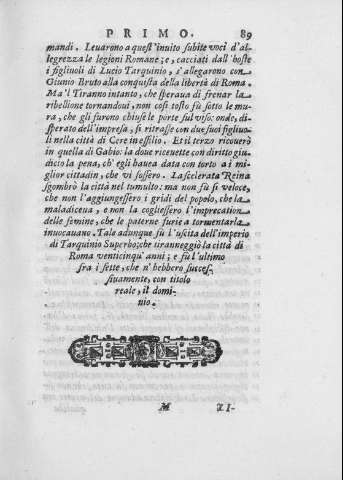 PRIMO. 89
mandi. Leuarono a quest'inuito subite voci d'al-
legrezza le legioni Romane; e, cacciati dall'hoste
i figliuoli di Lucio Tarquinio, s'allegarono con
Giunio Bruto alla conquista della libertà di Roma.
Ma'l Tiranno intanto, che speraua di frenar la
ribellione tornandoui, non così tosto fù sotto le mu-
ra, che gli furono chiuse le porte sul viso: onde, di-
sperato dell'impresa, si ritrasse con due suoi figliuo-
li nella città di Cere in essilio. Et il terzo ricouerò
in quella di Gabio: la doue riceuette con diritto giu-
dicio la pena, ch' egli hauea data con torto a i mi-
glior cittadin, che vi fossero. La scelerata Reina
sgombrò la città nel tumulto: ma non fù sì veloce,
che non l'aggiungessero i gridi del popolo, che la
maladiceua, e non la cogliessero l'imprecation
delle femine, che le paterne furie a tormentarla
inuocauano. Tale adunque fù l'uscita dell'imperio
di Tarquinio Superbo: che tiranneggiò la città di
Roma venticinqu' anni; e fù l'ultimo
fra i sette, che n' hebbero succes-
siuamente, con titolo
reale, il domi-
nio.
M XI-